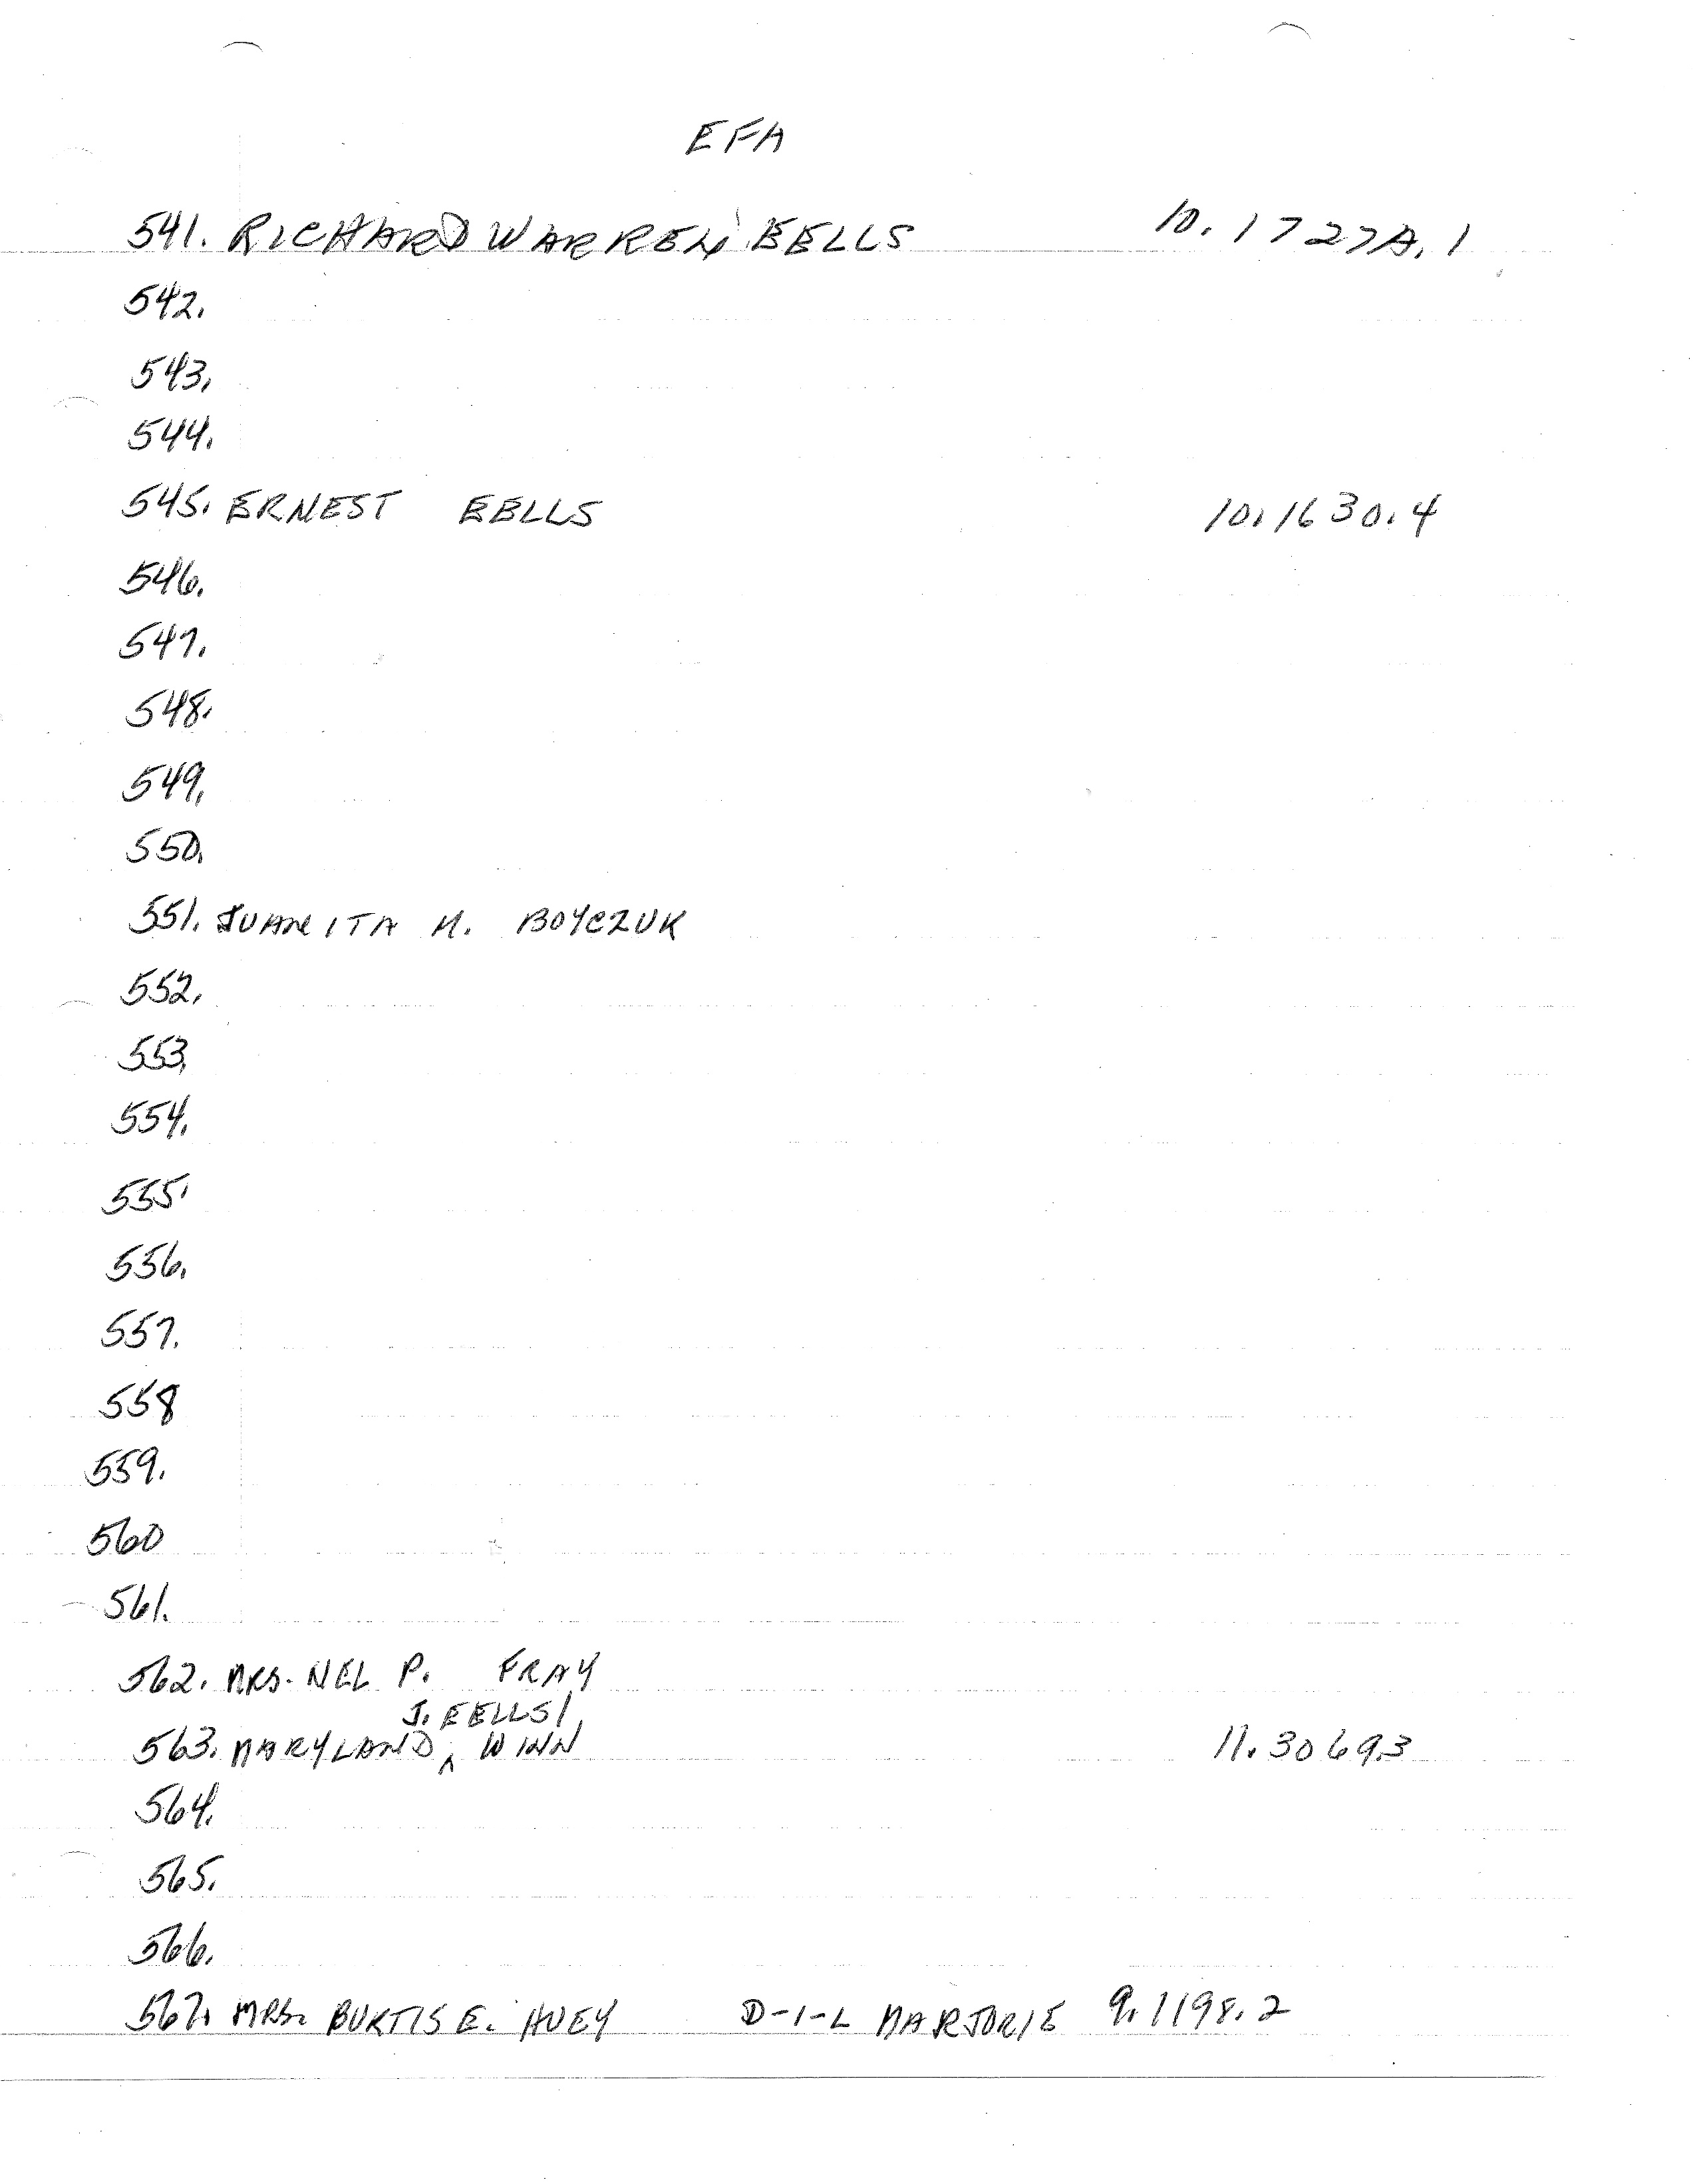 EFA
541. RICHARD WARREN EELLS 10.1727A.1
542.
543.
544.
545. ERNEST EELLS 10.1630.4
546.
547.
548.
549.
550.
551. JUANITA M. BOYCZUK
552.
553.
554.
555.
556.
557.
558
559.
560
561.
562. MRS. NEL P. FRAY
J. EELLS/
563. MARYLAND ^ WINN 11.3069.3
564.
565.
566.
567. MRS. BURTIS E. HUEY D-I-L MARJORIE 9.1198.2